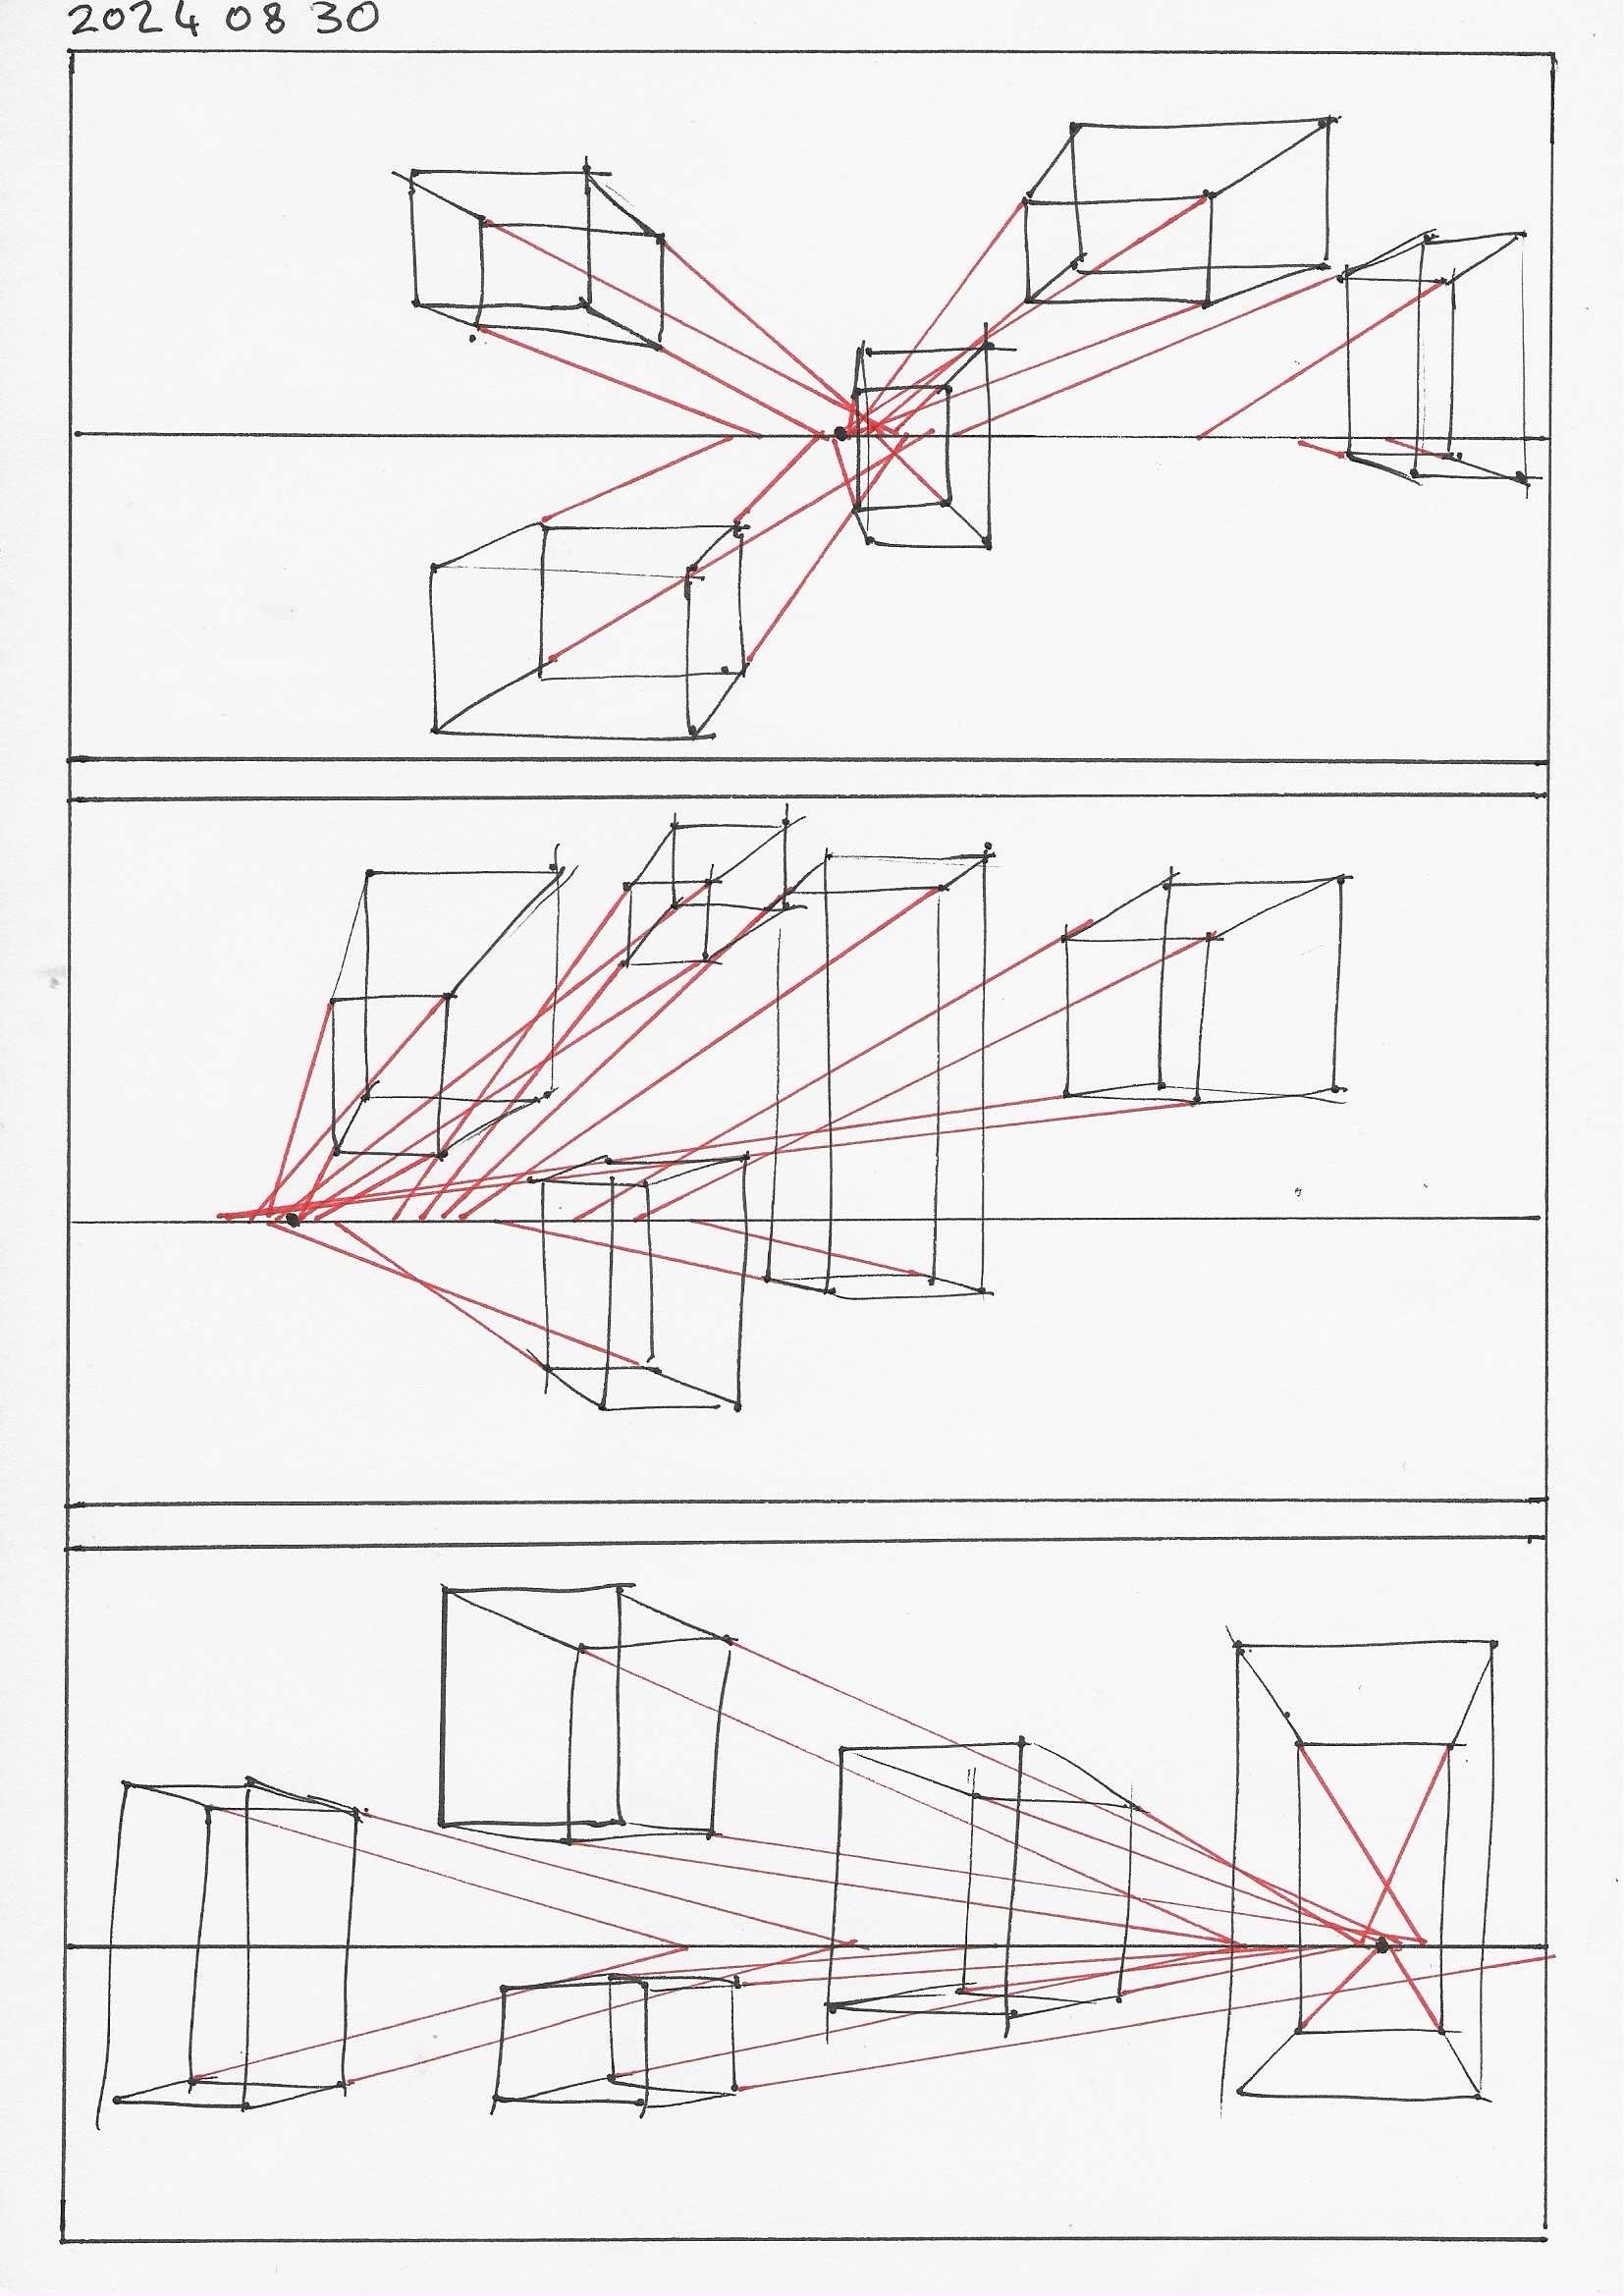 2024 08 30